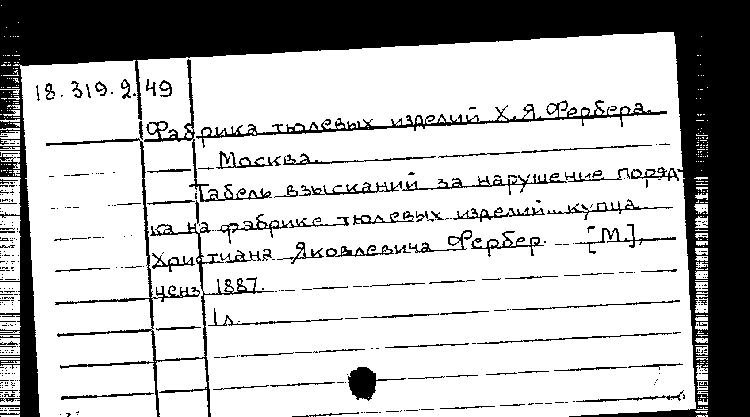 18.319.2.49
Фабрика тюлевых изделий Х.Я.Фербера.
Москва.
Табель взысканий за нарушение поряд-
ка на фабрике тюлевых изделий... купца
Христиана Яковлевича Фербер. [М.],
ценз. 1887.
1 л.